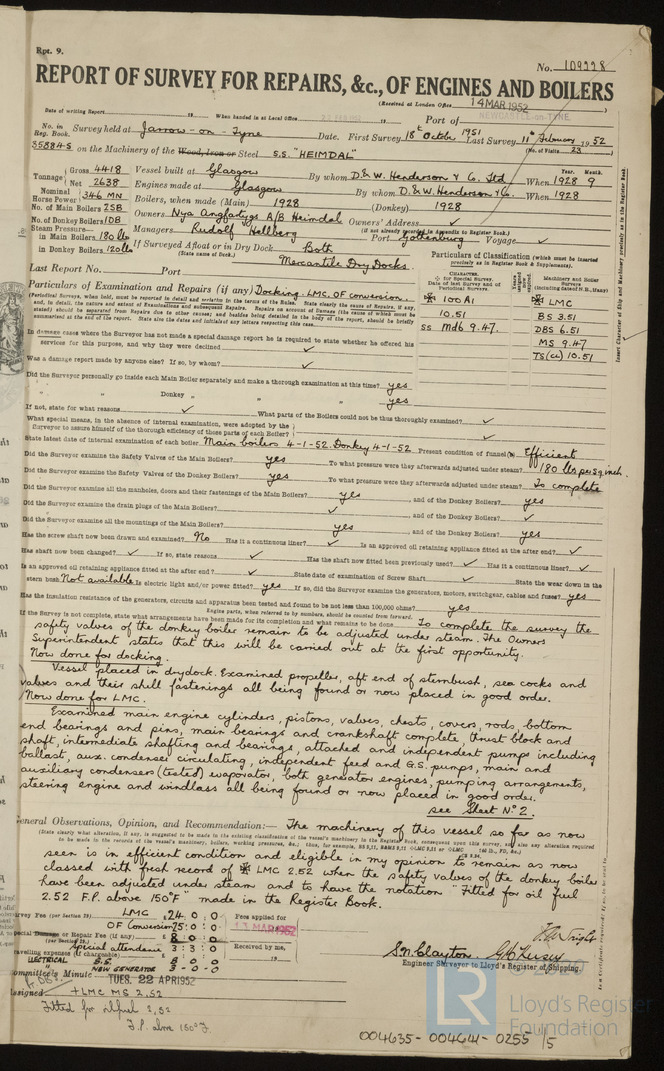 Rpt. 9.
No. 109998
REPORT OF SURVEY FOR REPAIRS, &c., OF ENGINES AND BOILERS
(Received at London Office 14 MAR 1952 )
Date of writing Report 19 When handed in at Local Office 19 Port of NEWCASTLE-on-TYNE
No. in Reg. Book. Survey held at Jarrow-on-Tyne Date. First Survey 18th October 1951 Last Survey 11th February 1952
(No. of Visits 23 )
35884-S on the Machinery of the Wood, Iron or Steel S.S. "HEIMDAL"
Tonnage Gross 4418 Vessel built at Glasgow By whom D. & W. Henderson & Co. Ltd When 1928 9
Net 2638 Engines made at Glasgow By whom D. & W. Henderson & Co. When 1928
Nominal Horse Power 346 MN Boilers, when made (Main) 1928 (Donkey) 1928
No. of Main Boilers 2SB Owners Nya Angfartygs A/B Heimdal Owners' Address ✓
No. of Donkey Boilers 1DB (if not already recorded in Appendix to Register Book.)
Steam Pressure— Managers Rudolf Hellberg Port Gothenburg Voyage ✓
in Main Boilers 180 lbs If Surveyed Afloat or in Dry Dock Both
in Donkey Boilers 120 lbs (State name of Dock.) Mercantile Dry Docks.
Last Report No. Port
Particulars of Classification (which must be inserted precisely as in Register Book & Supplements).
Particulars of Examination and Repairs (if any) Docking. LMC. OF conversion.
✠ 100 A1 ✠ LMC
10.51 BS 3.51
SS Mdб 9.47. DBS 6.51
MS 9.47
TS(CL) 10.51
Insert Character of Ship and Machinery precisely as in the Register Book.
In damage cases where the Surveyor has not made a special damage report he is required to state whether he offered his
services for this purpose, and why they were declined ✓
Was a damage report made by anyone else? If so, by whom? ✓
Did the Surveyor personally go inside each Main Boiler separately and make a thorough examination at this time? yes
" " Donkey " " " yes
If not, state for what reasons ✓ What parts of the Boilers could not be thus thoroughly examined? ✓
What special means, in the absence of internal examination, were adopted by the
Surveyor to assure himself of the thorough efficiency of those parts of each Boiler? ✓
State latest date of internal examination of each boiler Main boilers 4-1-52. Donkey 4-1-52 Present condition of funnel(s) Efficient
Did the Surveyor examine the Safety Valves of the Main Boilers? yes To what pressure were they afterwards adjusted under steam? 180 lbs per sq inch.
Did the Surveyor examine the Safety Valves of the Donkey Boilers? yes To what pressure were they afterwards adjusted under steam? To complete
Did the Surveyor examine all the manholes, doors and their fastenings of the Main Boilers? yes , and of the Donkey Boilers? yes
Did the Surveyor examine the drain plugs of the Main Boilers? ✓ , and of the Donkey Boilers? ✓
Did the Surveyor examine all the mountings of the Main Boilers? yes , and of the Donkey Boilers? yes
Has the screw shaft now been drawn and examined? No Has it a continuous liner? ✓ Is an approved oil retaining appliance fitted at the after end? ✓
Has shaft now been changed? ✓ If so, state reasons ✓ Has the shaft now fitted been previously used? ✓ Has it a continuous liner? ✓
Is an approved oil retaining appliance fitted at the after end? ✓ State date of examination of Screw Shaft ✓ State the wear down in the
stern bush Not available Is electric light and/or power fitted? yes If so, did the Surveyor examine the generators, motors, switchgear, cables and fuses? yes
Has the insulation resistance of the generators, circuits and apparatus been tested and found to be not less than 100,000 ohms? yes
Engine parts, when referred to by numbers, should be counted from forward.
If the Survey is not complete, state what arrangements have been made for its completion and what remains to be done To complete the survey the
safety valves of the donkey boiler remain to be adjusted under steam. The Owners
Superintendent states that this will be carried out at the first opportunity.
Now done for docking.
Vessel placed in drydock. Examined propeller, aft end of sternbush, sea cocks and
valves and their shell fastenings all being found or now placed in good order.
Now done for LMC.
Examined main engine cylinders, pistons, valves, chests, covers, rods, bottom
end bearings and pins, main bearings and crankshaft complete thrust block and
shaft, intermediate shafting and bearings, attached and independent pumps including
ballast, aux. condenser circulating, independent feed and G.S. pumps, main and
auxiliary condensers (tested) evaporator, both generator engines, pumping arrangements,
steering engine and windlass all being found or now placed in good order.
see Sheet No 2.
General Observations, Opinion, and Recommendation:— The machinery of this vessel so far as now
seen is in efficient condition and eligible in my opinion to remain as now
classed with fresh record of ✠ LMC 2.52 when the safety valves of the donkey boiler
have been adjusted under steam and to have the notation "Fitted for oil fuel
2.52 F.P. above 150°F. made in the Register Book.
Survey Fee (per Section 29) LMC £ 24 : 0 : 0 Fees applied for
OF Conversion 75 : 0 : 0 13 MAR 1952
Special Damage or Repair Fee (if any) (per Section 29) £ 8 : 0 : 0
Special attendance 3 : 3 : 0 Received by me,
Travelling expenses (if chargeable) 19
ELECTRICAL S.S. 8 : 0 : 0
NEW GENERATOR 3 - 0 - 0
S.N. Clayton.
Engineer Surveyor to Lloyd's Register of Shipping.
Committee's Minute TUES. 22 APR 1952
Assigned + LMC MS 2.52
Fitted for oil fuel 2.52
F.P. above 150°F
© 2020
LR
Lloyd's Register
Foundation
004635-004641-0255 /5